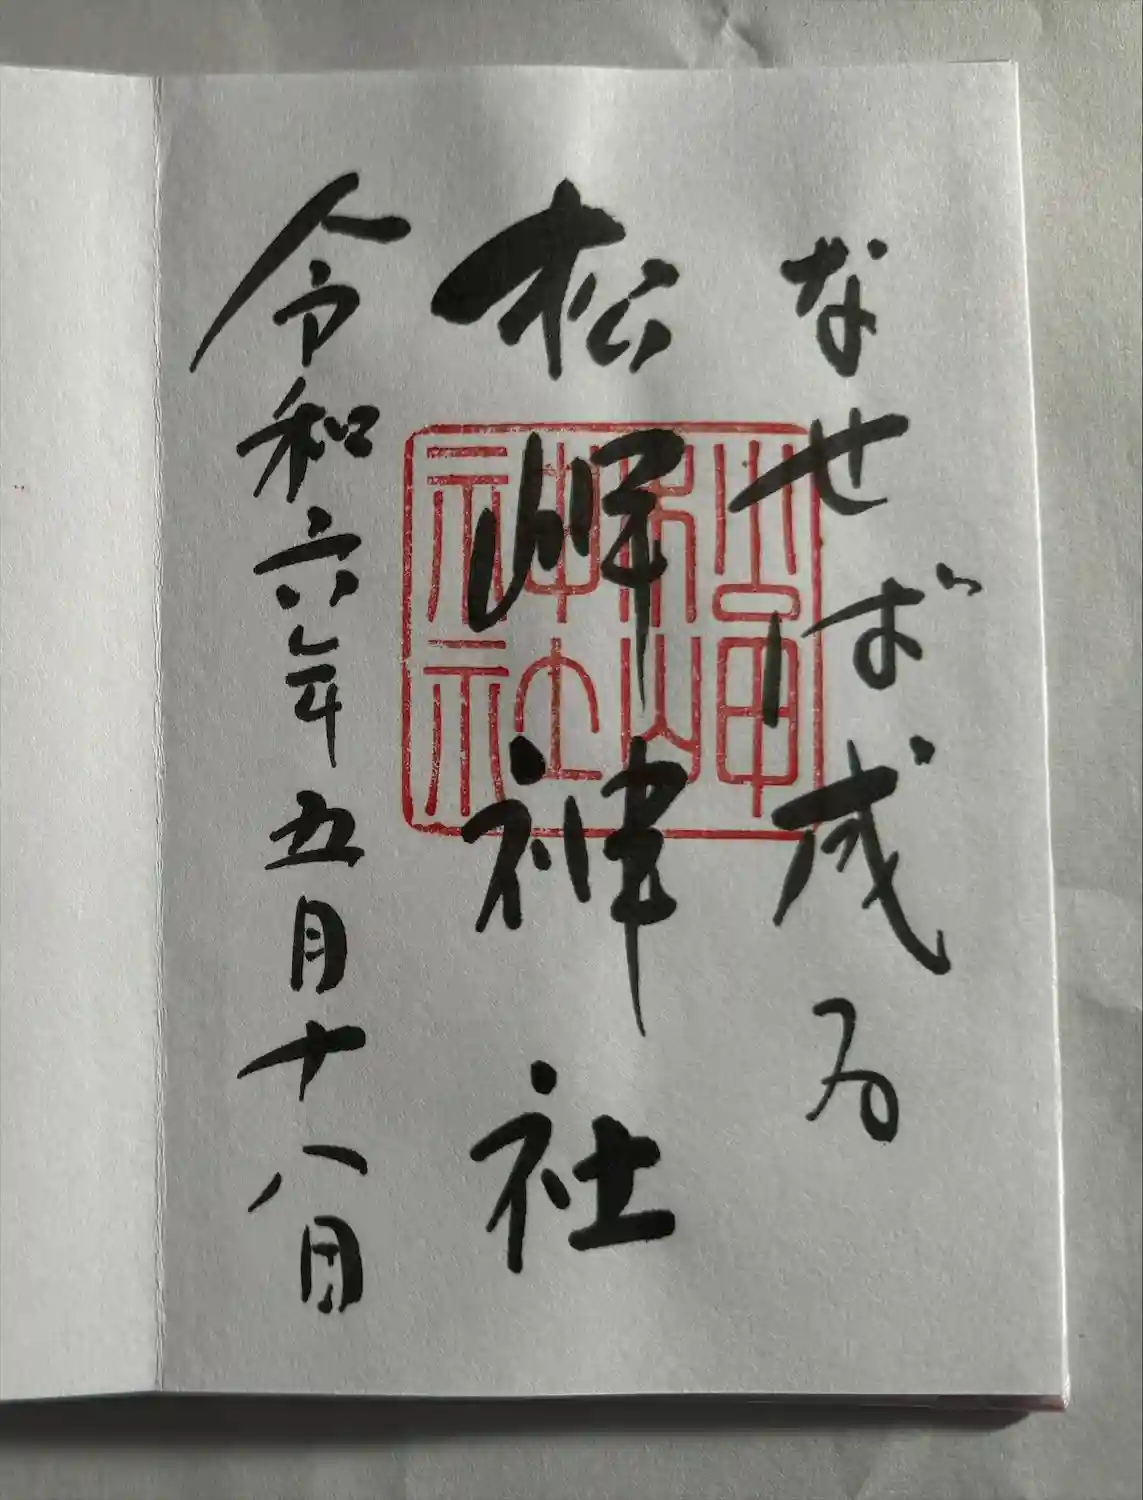 なせば成る
松岬神社
令和六年五月十八日
松岬
神社